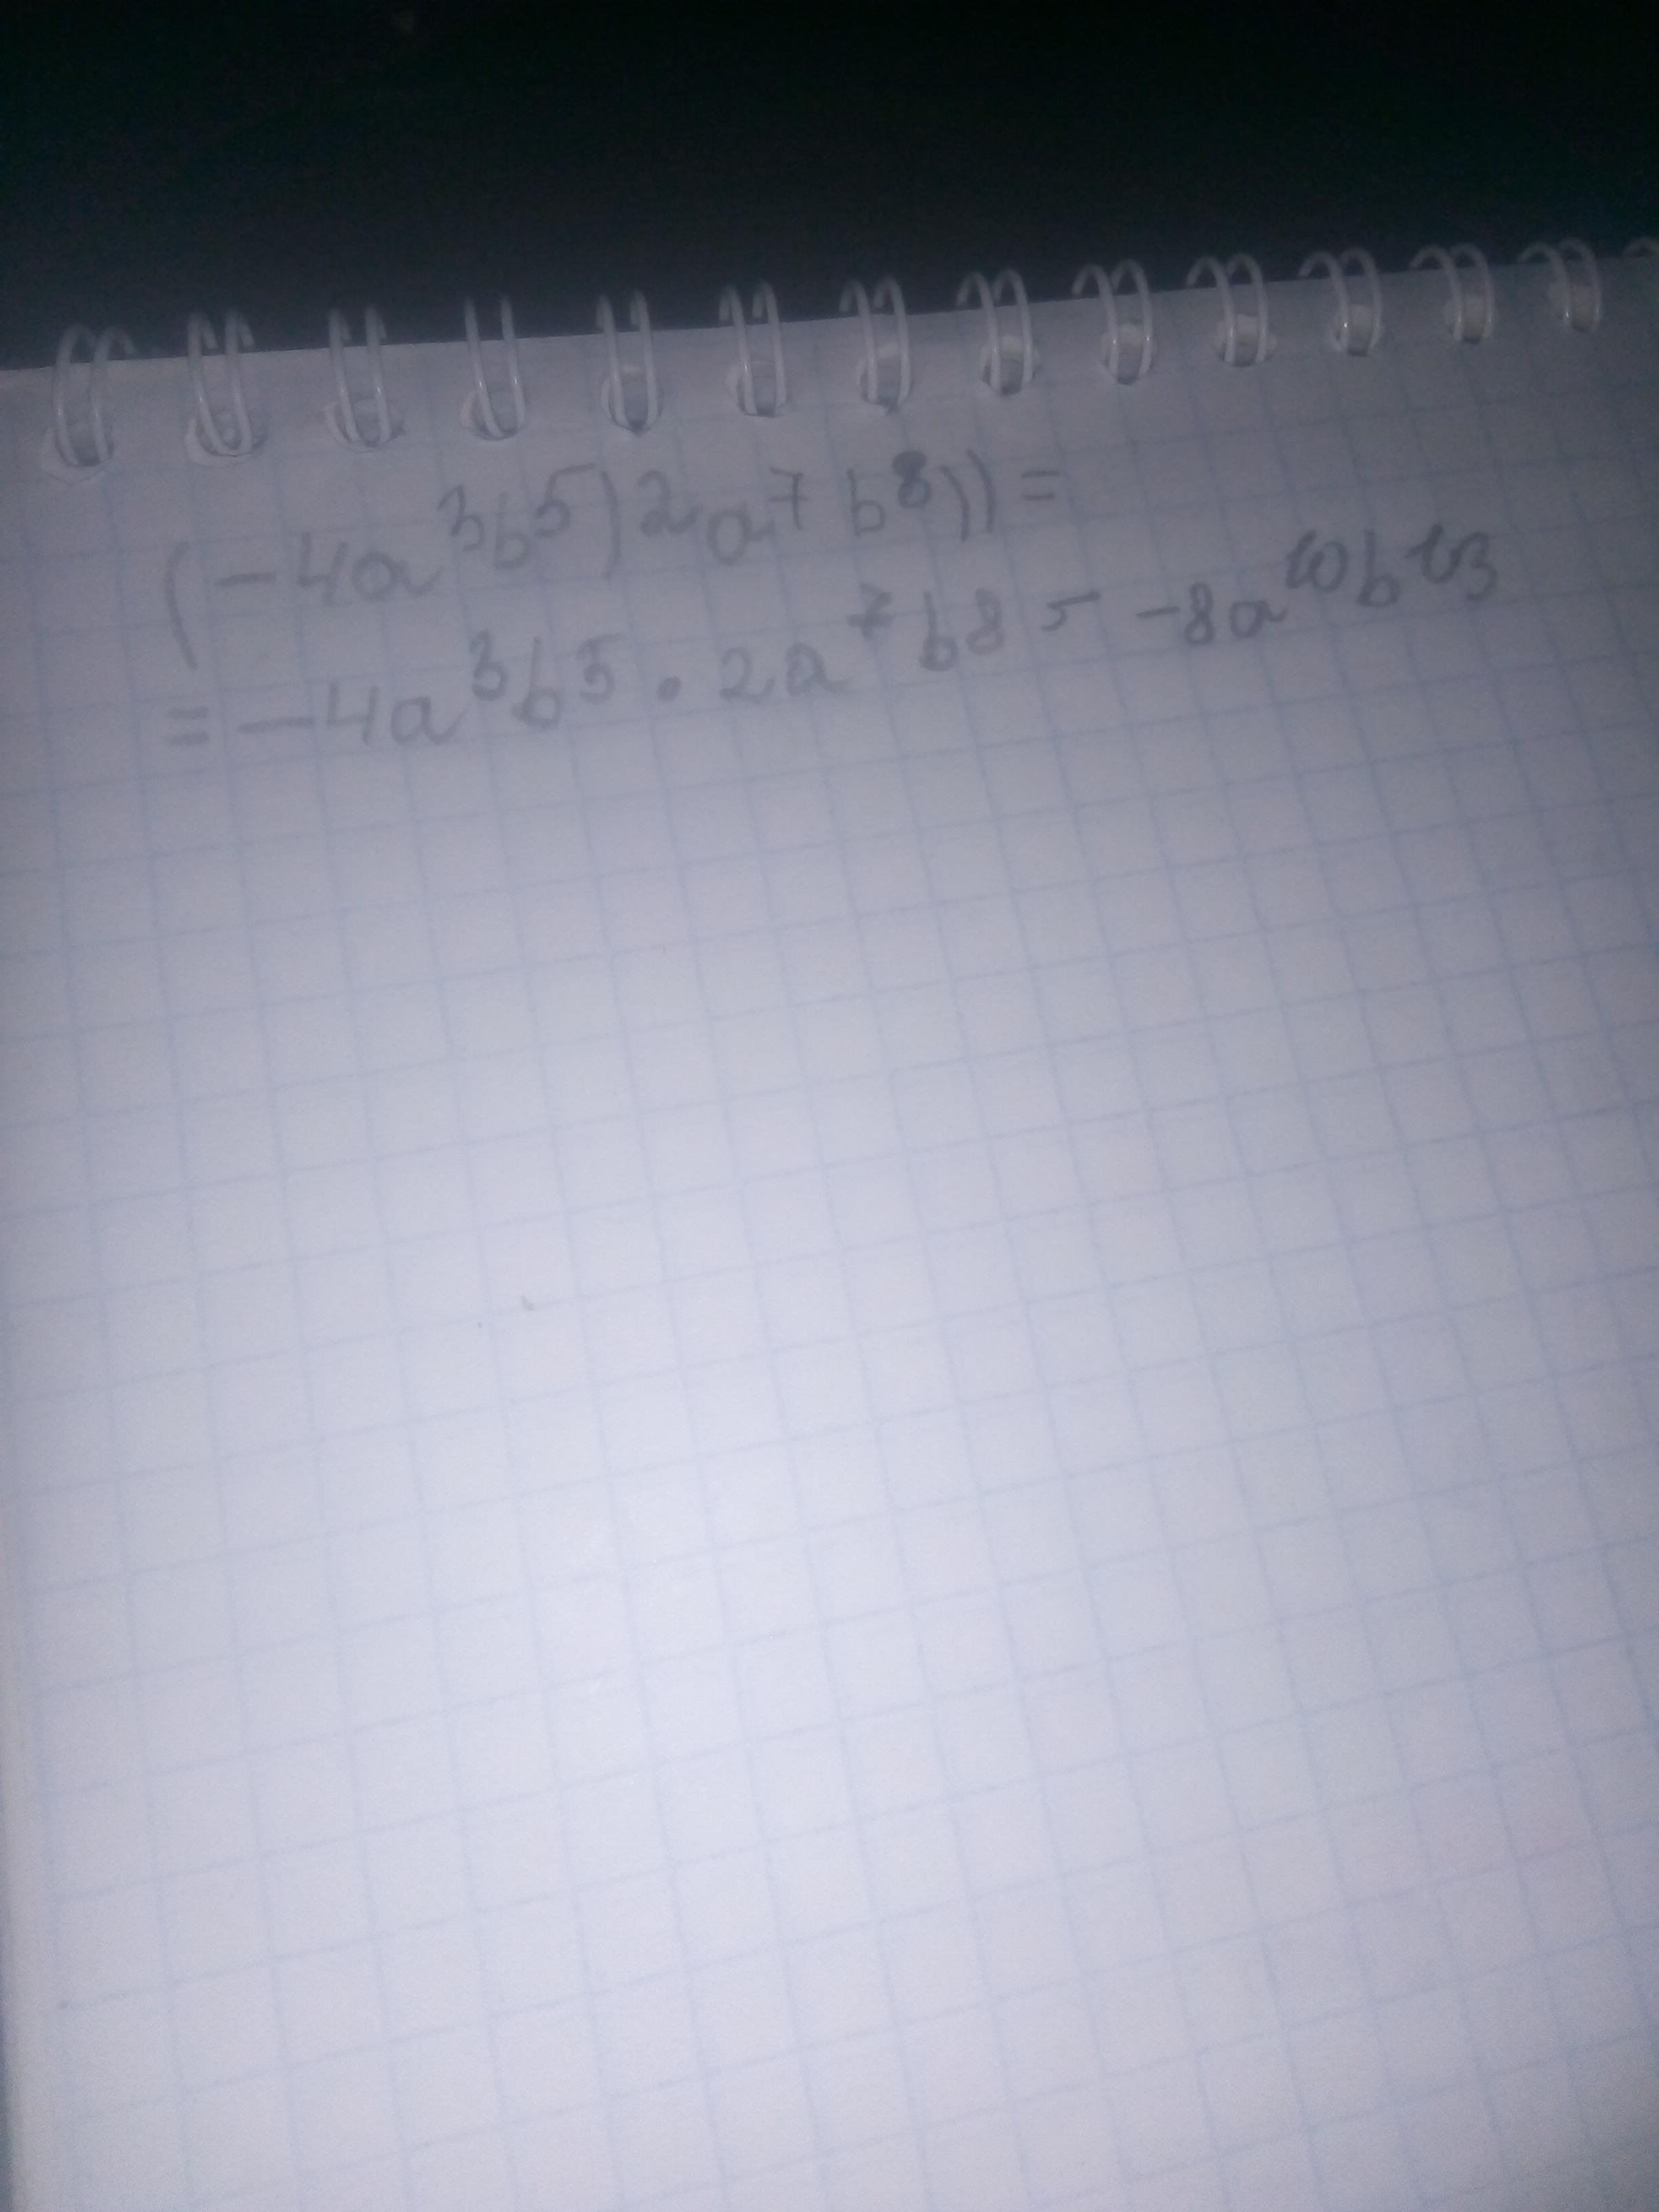 (-4a³b⁵)2a⁷b⁸))=
=-4a³b⁵·2a⁷b8=-8a¹⁰b¹³